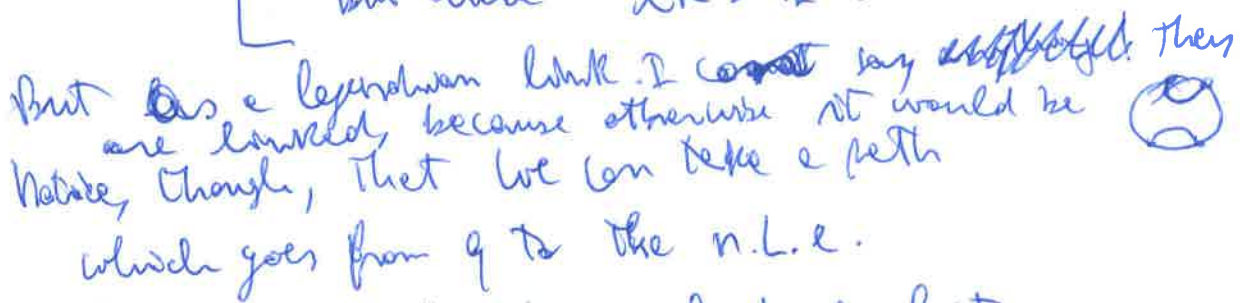 But
But as a legendrian link. I say They
are linked, because otherwise it would be
Notice, though, that we can take a path
which goes from q to the n.L.e.